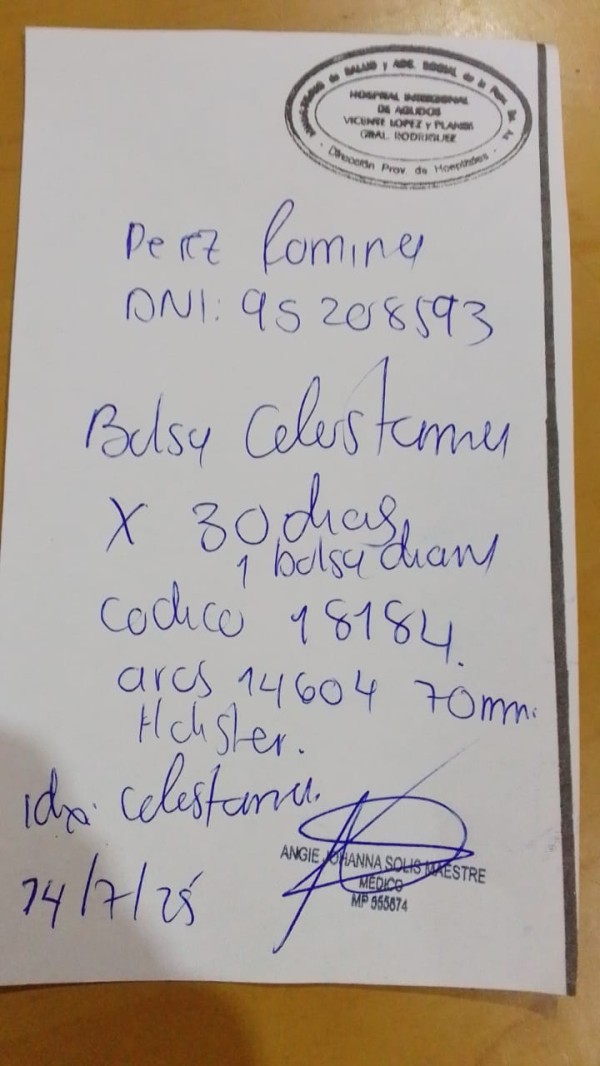 MINISTERIO de SALUD y ACC. SOCIAL de la Prov. Bs. As
HOSPITAL INTERZONAL
DE AGUDOS
VICENTE LOPEZ y PLANES
GRAL. RODRIGUEZ
Dirección Prov. de Hospitales
Perez Romina
DNI: 95 208593
Bolsa Colostomia
X 30 dias
1 bolsa diaria
Codigo 18184.
aros 14604 70mm.
Hollister.
idx: Colostomia.
14/7/25
ANGIE JOHANNA SOLIS MAESTRE
MEDICO
MP 555674